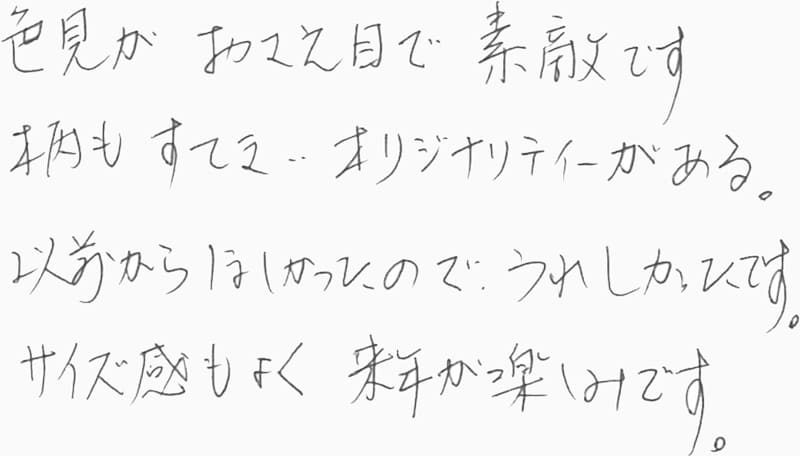 色見が おさえ目で 素敵です
柄も すてき‥ オリジナリティーがある。
以前からほしかったので うれしかったです。
サイズ感もよく 来年が楽しみです。